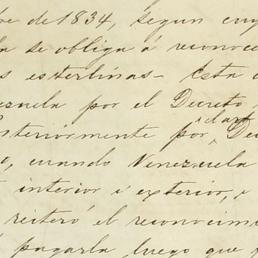 de 1834, segun cuy
la se obliga á reconoce
s esterlinas - Esta d
zuela por el Decreto
steriormente por Dec
o, cuando Venezuela
interior é exterior, é
reiteró el reconocim
pagarla luego que